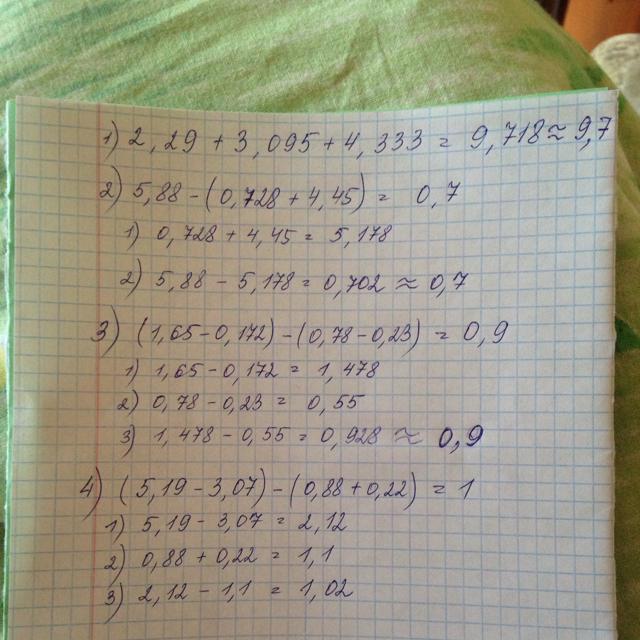 1) 2,29 + 3,095 + 4,333 = 9,718 ≈ 9,7
2) 5,88 - (0,728 + 4,45) = 0,7
1) 0,728 + 4,45 = 5,178
2) 5,88 - 5,178 = 0,702 ≈ 0,7
3) (1,65 - 0,172) - (0,78 - 0,23) = 0,9
1) 1,65 - 0,172 = 1,478
2) 0,78 - 0,23 = 0,55
3) 1,478 - 0,55 = 0,928 ≈ 0,9
4) (5,19 - 3,07) - (0,88 + 0,22) = 1
1) 5,19 - 3,07 = 2,12
2) 0,88 + 0,22 = 1,1
3) 2,12 - 1,1 = 1,02